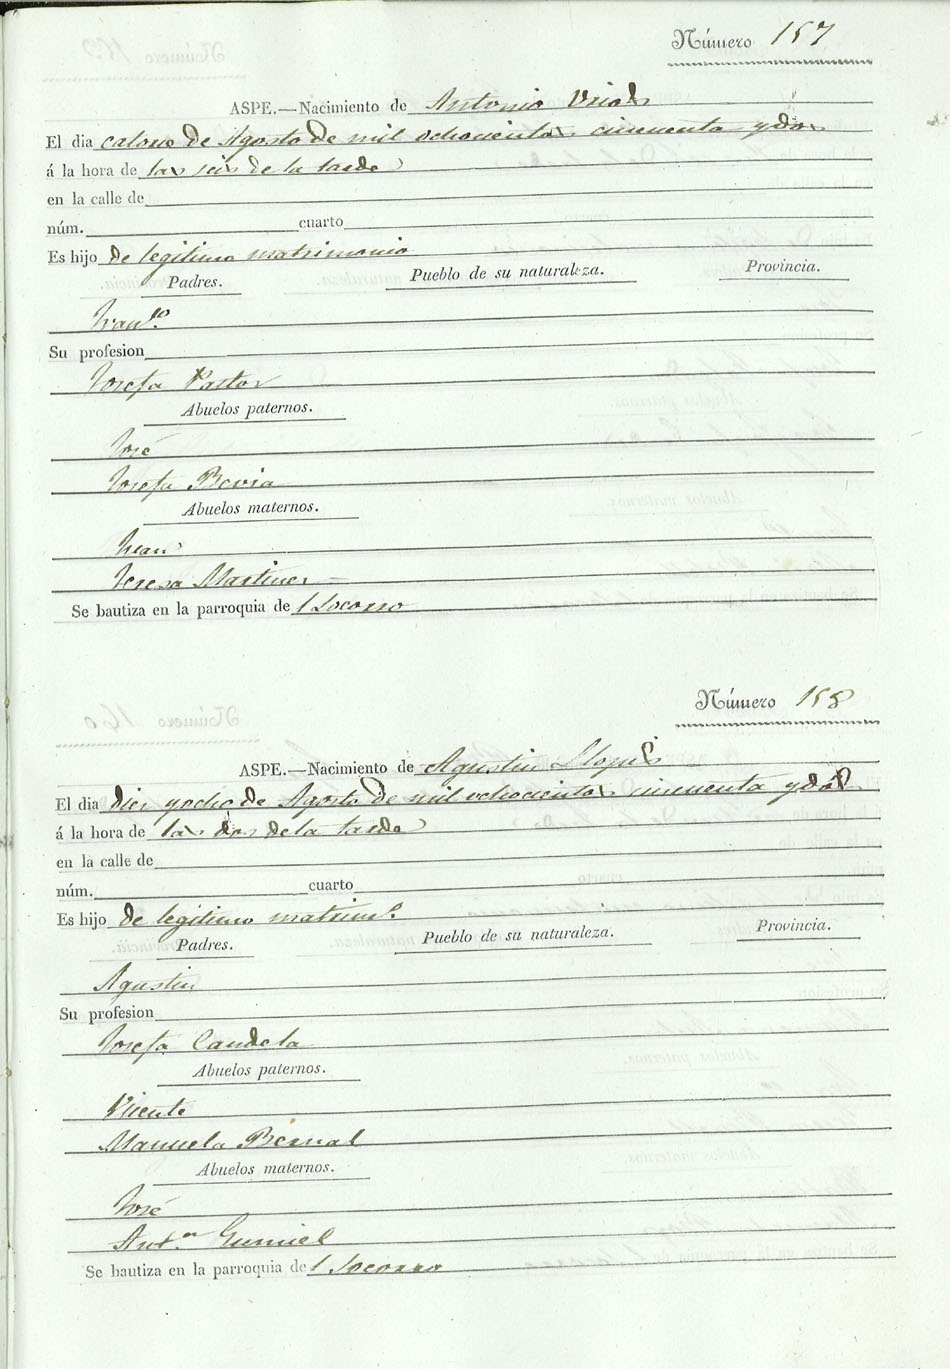 Número 157
ASPE.—Nacimiento de Antonio Urios
El dia catorce de Agosto de mil ochocientos cincuenta y dos
á la hora de las seis de la tarde
en la calle de
núm. cuarto
Es hijo de legitimo matrimonio
Padres. Pueblo de su naturaleza. Provincia.
Franco
Su profesion
Josefa Pastor
Abuelos paternos.
José
Josefa Bevia
Abuelos maternos.
Juan
Teresa Martinez
Se bautiza en la parroquia del Socorro
Número 158
ASPE.—Nacimiento de Agustin Llopis
El dia diez y ocho de Agosto de mil ochocientos cincuenta y dos
á la hora de las dos de la tarde
en la calle de
núm. cuarto
Es hijo de legitimo matrimo
Padres. Pueblo de su naturaleza. Provincia.
Agustin
Su profesion
Josefa Candela
Abuelos paternos.
Vicente
Manuela Bernal
Abuelos maternos.
José
Anta Gumiel
Se bautiza en la parroquia del Socorro